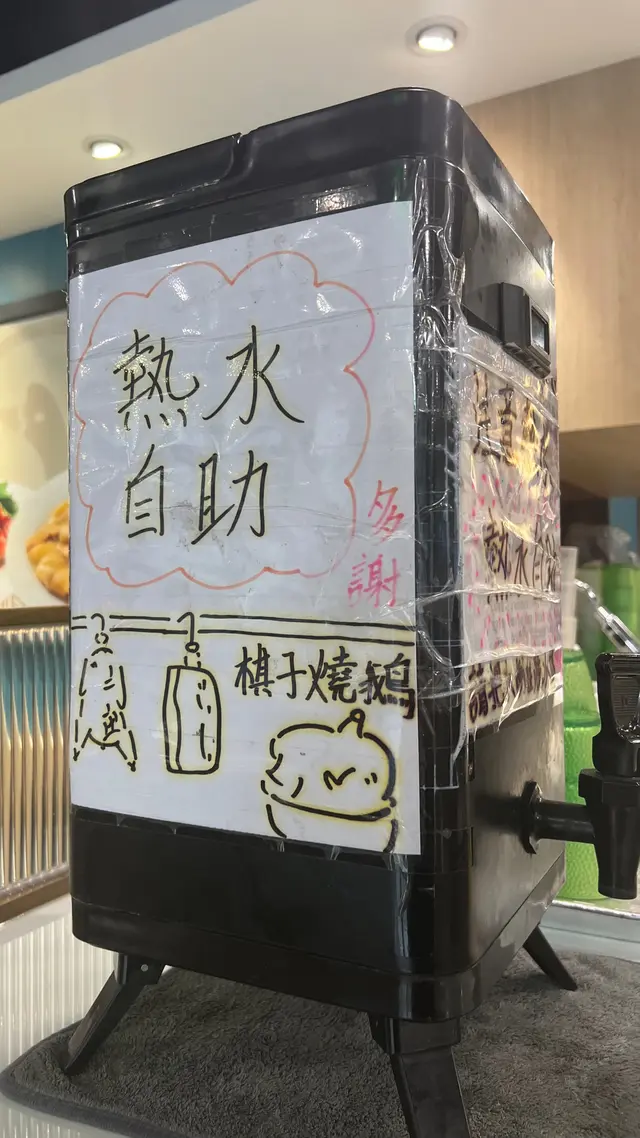 熱水
自助
多謝
棋子燒鵝
熱水自